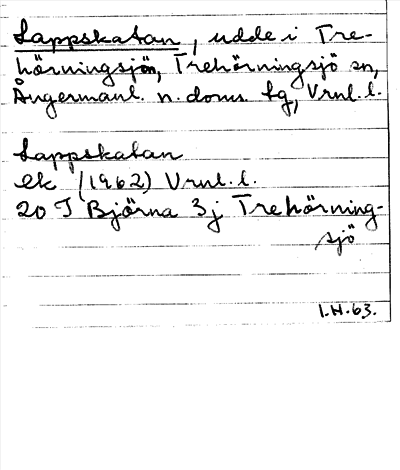 Lappskatan, udde i Tre-
hörningsjön, Trehörningsjö sn,
Ångermanl. n. doms. tg, Vrnl. l.
Lappskatan
ek (1962) Vrnl. l.
20 I Björna 3j Trehörning-
sjö
I.H.63.